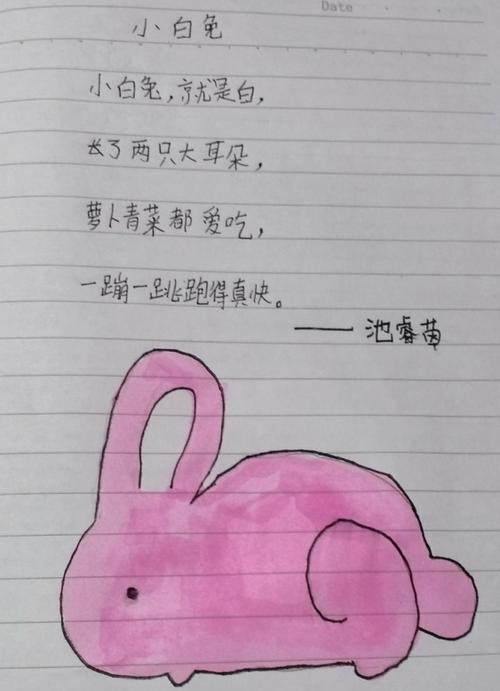 Date
小白兔
小白兔,就是白,
长了两只大耳朵,
萝卜青菜都爱吃,
一蹦一跳跑得真快。
—— 池睿苗